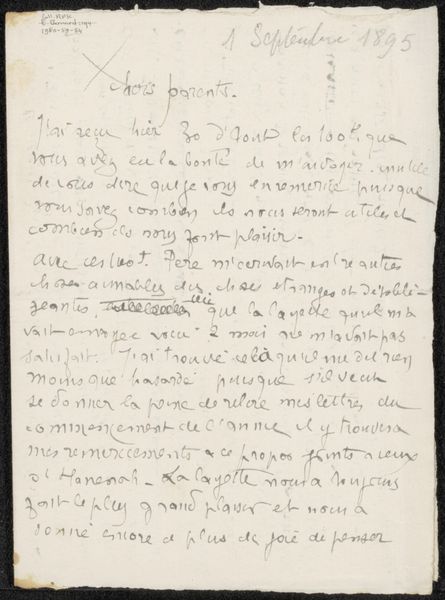 1 Septembre 1895
chers parents.
J'ai reçu hier 30 d'Aout les 100f. que
vous avez eu la bonté de m'envoyer. inutile
de vous dire que je vous en remercie puisque
vous savez combien ils nous seront utiles et
combien ils nous font plaisir.
avec ces 100f. Père m'ecrivait entre autres
choses aimables des choses etranges et désobli-
geantes, que la layette qu'il m'a
vait envoyée voici 2 mois que m'avait pas
satisfait. J'ai trouvé celà qu'il me dit rien
moins que hasardé puisque s'il veut
se donner la peine de relire mes lettres du
commencement de l'année il y trouvera
mes remerciements à ce propos joints à ceux
d'Hanenah. La layette nous a toujours
fait le plus grand plaisir et nous a
donné encore de plus de joie de penser